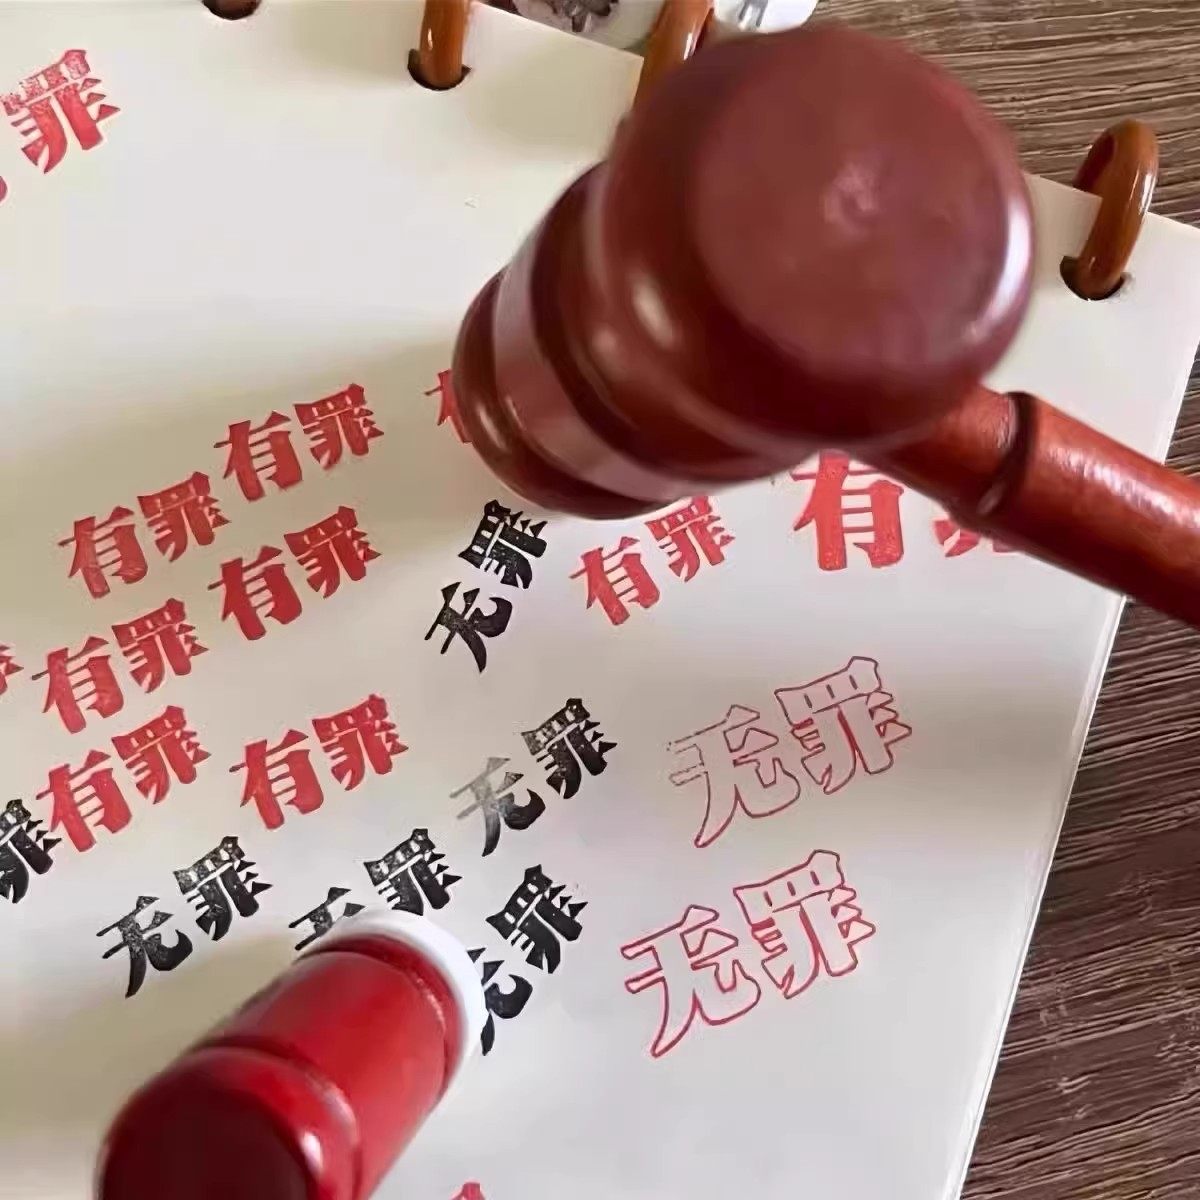 罪
有罪
有罪
有罪
有罪
无罪
有罪
有罪
有罪
有罪
无罪
无罪
无罪
无罪
无罪
无罪
无罪
罪